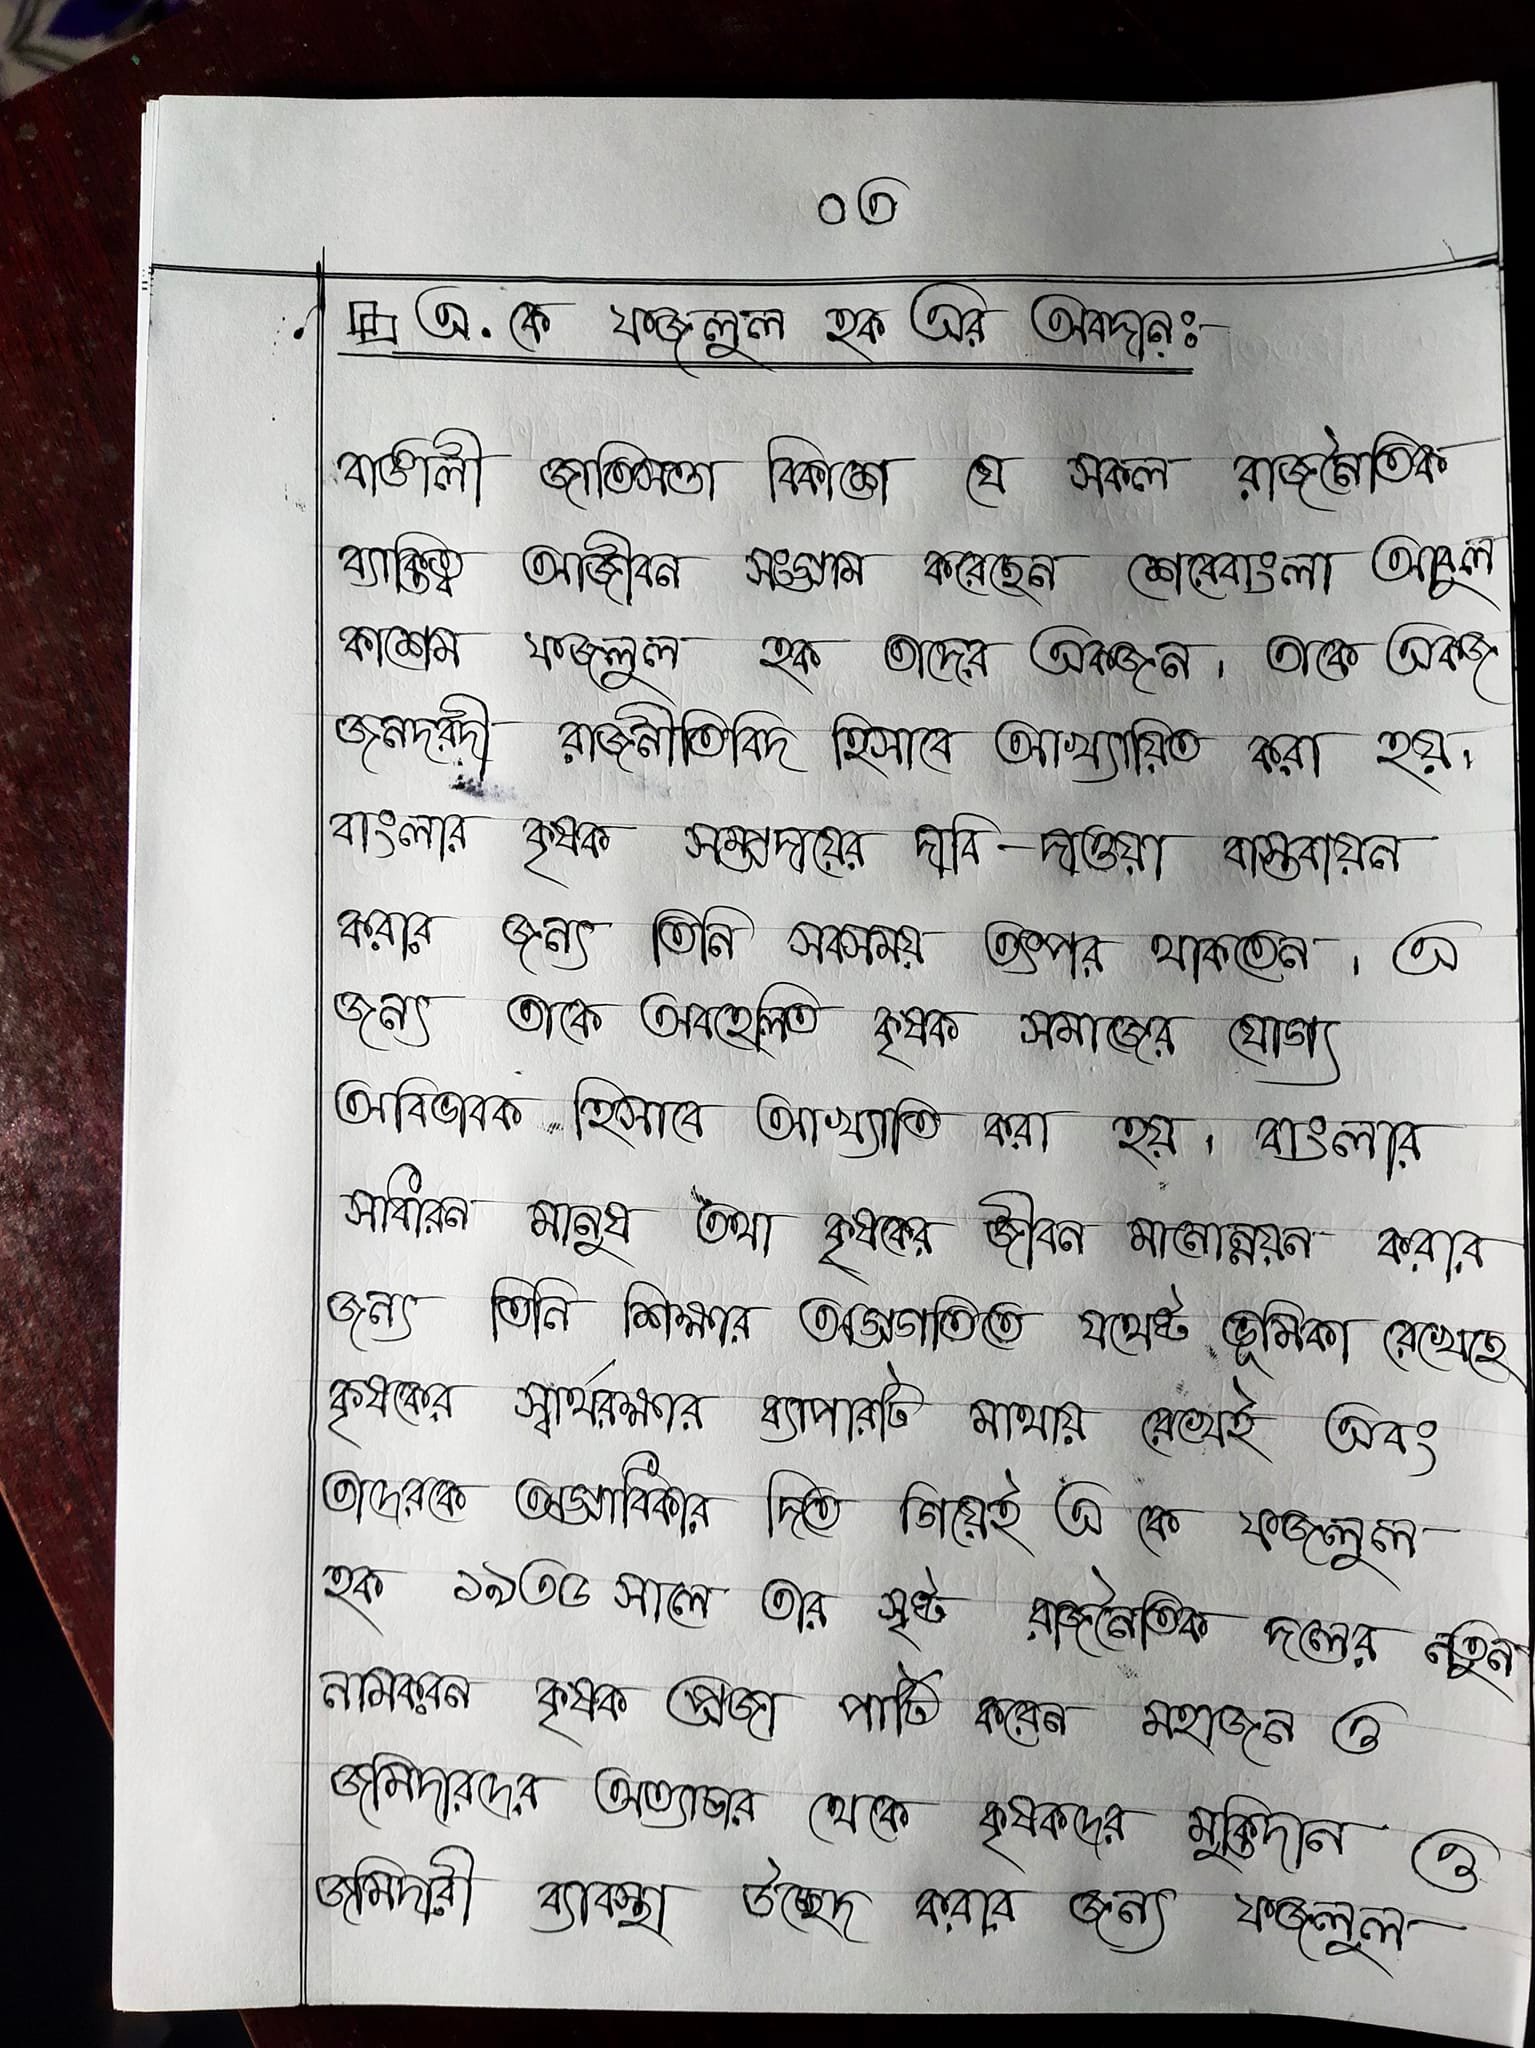 ০৩
এ. কে ফজলুল হক এর অবদানঃ-
বাঙালী জাতিসত্তা বিকাশে যে সকল রাজনৈতিক
ব্যাক্তিত্ব আজীবন সংগ্রাম করেছেন শেরেবাংলা আবুল
কাশেম ফজলুল হক তাদের একজন। তাকে একজ
জনদরদী রাজনীতিবিদ হিসাবে আখ্যায়িত করা হয়।
বাংলার কৃষক সম্প্রদায়ের দাবি-দাওয়া বাস্তবায়ন
করার জন্য তিনি সবসময় তৎপর থাকতেন। এ
জন্য তাকে অবহেলিত কৃষক সমাজের যোগ্য
অবিভাবক হিসাবে আখ্যাতি করা হয়। বাংলার
সাধারন মানুষ তথা কৃষকের জীবন মানোন্নয়ন করার
জন্য তিনি শিক্ষার অগ্রগতিতে যথেষ্ট ভূমিকা রেখেছে
কৃষকের স্বার্থরক্ষার ব্যাপারটি মাথায় রেখেই এবং
তাদেরকে অগ্রাধিকার দিতে গিয়েই এ কে ফজলুল
হক ১৯৩৫ সালে তার সৃষ্ট রাজনৈতিক দলের নতুন
নামকরন কৃষক প্রজা পার্টি করেন মহাজন ও
জমিদারদের অত্যাচার থেকে কৃষকদের মুক্তিদান ও
জমিদারী ব্যাবস্থা উচ্ছেদ করার জন্য ফজলুল